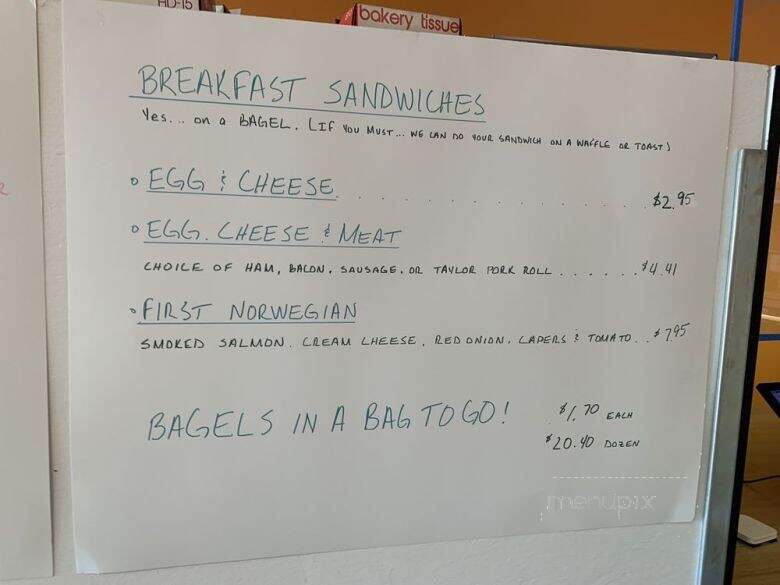 HD-15
bakery tissue
BREAKFAST SANDWICHES
Yes... on a BAGEL. (IF YOU MUST... WE CAN DO YOUR SANDWICH ON A WAFFLE OR TOAST)
• EGG & CHEESE . . . . . . . . . . . . . $2.95
• EGG. CHEESE & MEAT
CHOICE OF HAM, BACON, SAUSAGE, OR TAYLOR PORK ROLL . . . . . . $4.41
• FIRST NORWEGIAN
SMOKED SALMON. CREAM CHEESE, RED ONION, CAPERS & TOMATO . . $7.95
BAGELS IN A BAG TO GO! $1.70 EACH
$20.40 DOZEN
menupix